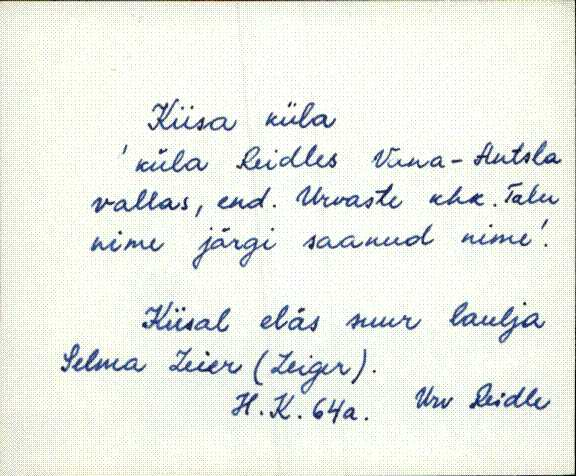 Kiisa küla
'küla Reidles Vana-Antsla
vallas, end. Urvaste khk. Talu
nime järgi saanud nime'.
Kiisal eläs suur laulja
Selma Zeier (Zeiger).
H.K. 64a. Urv Reidle